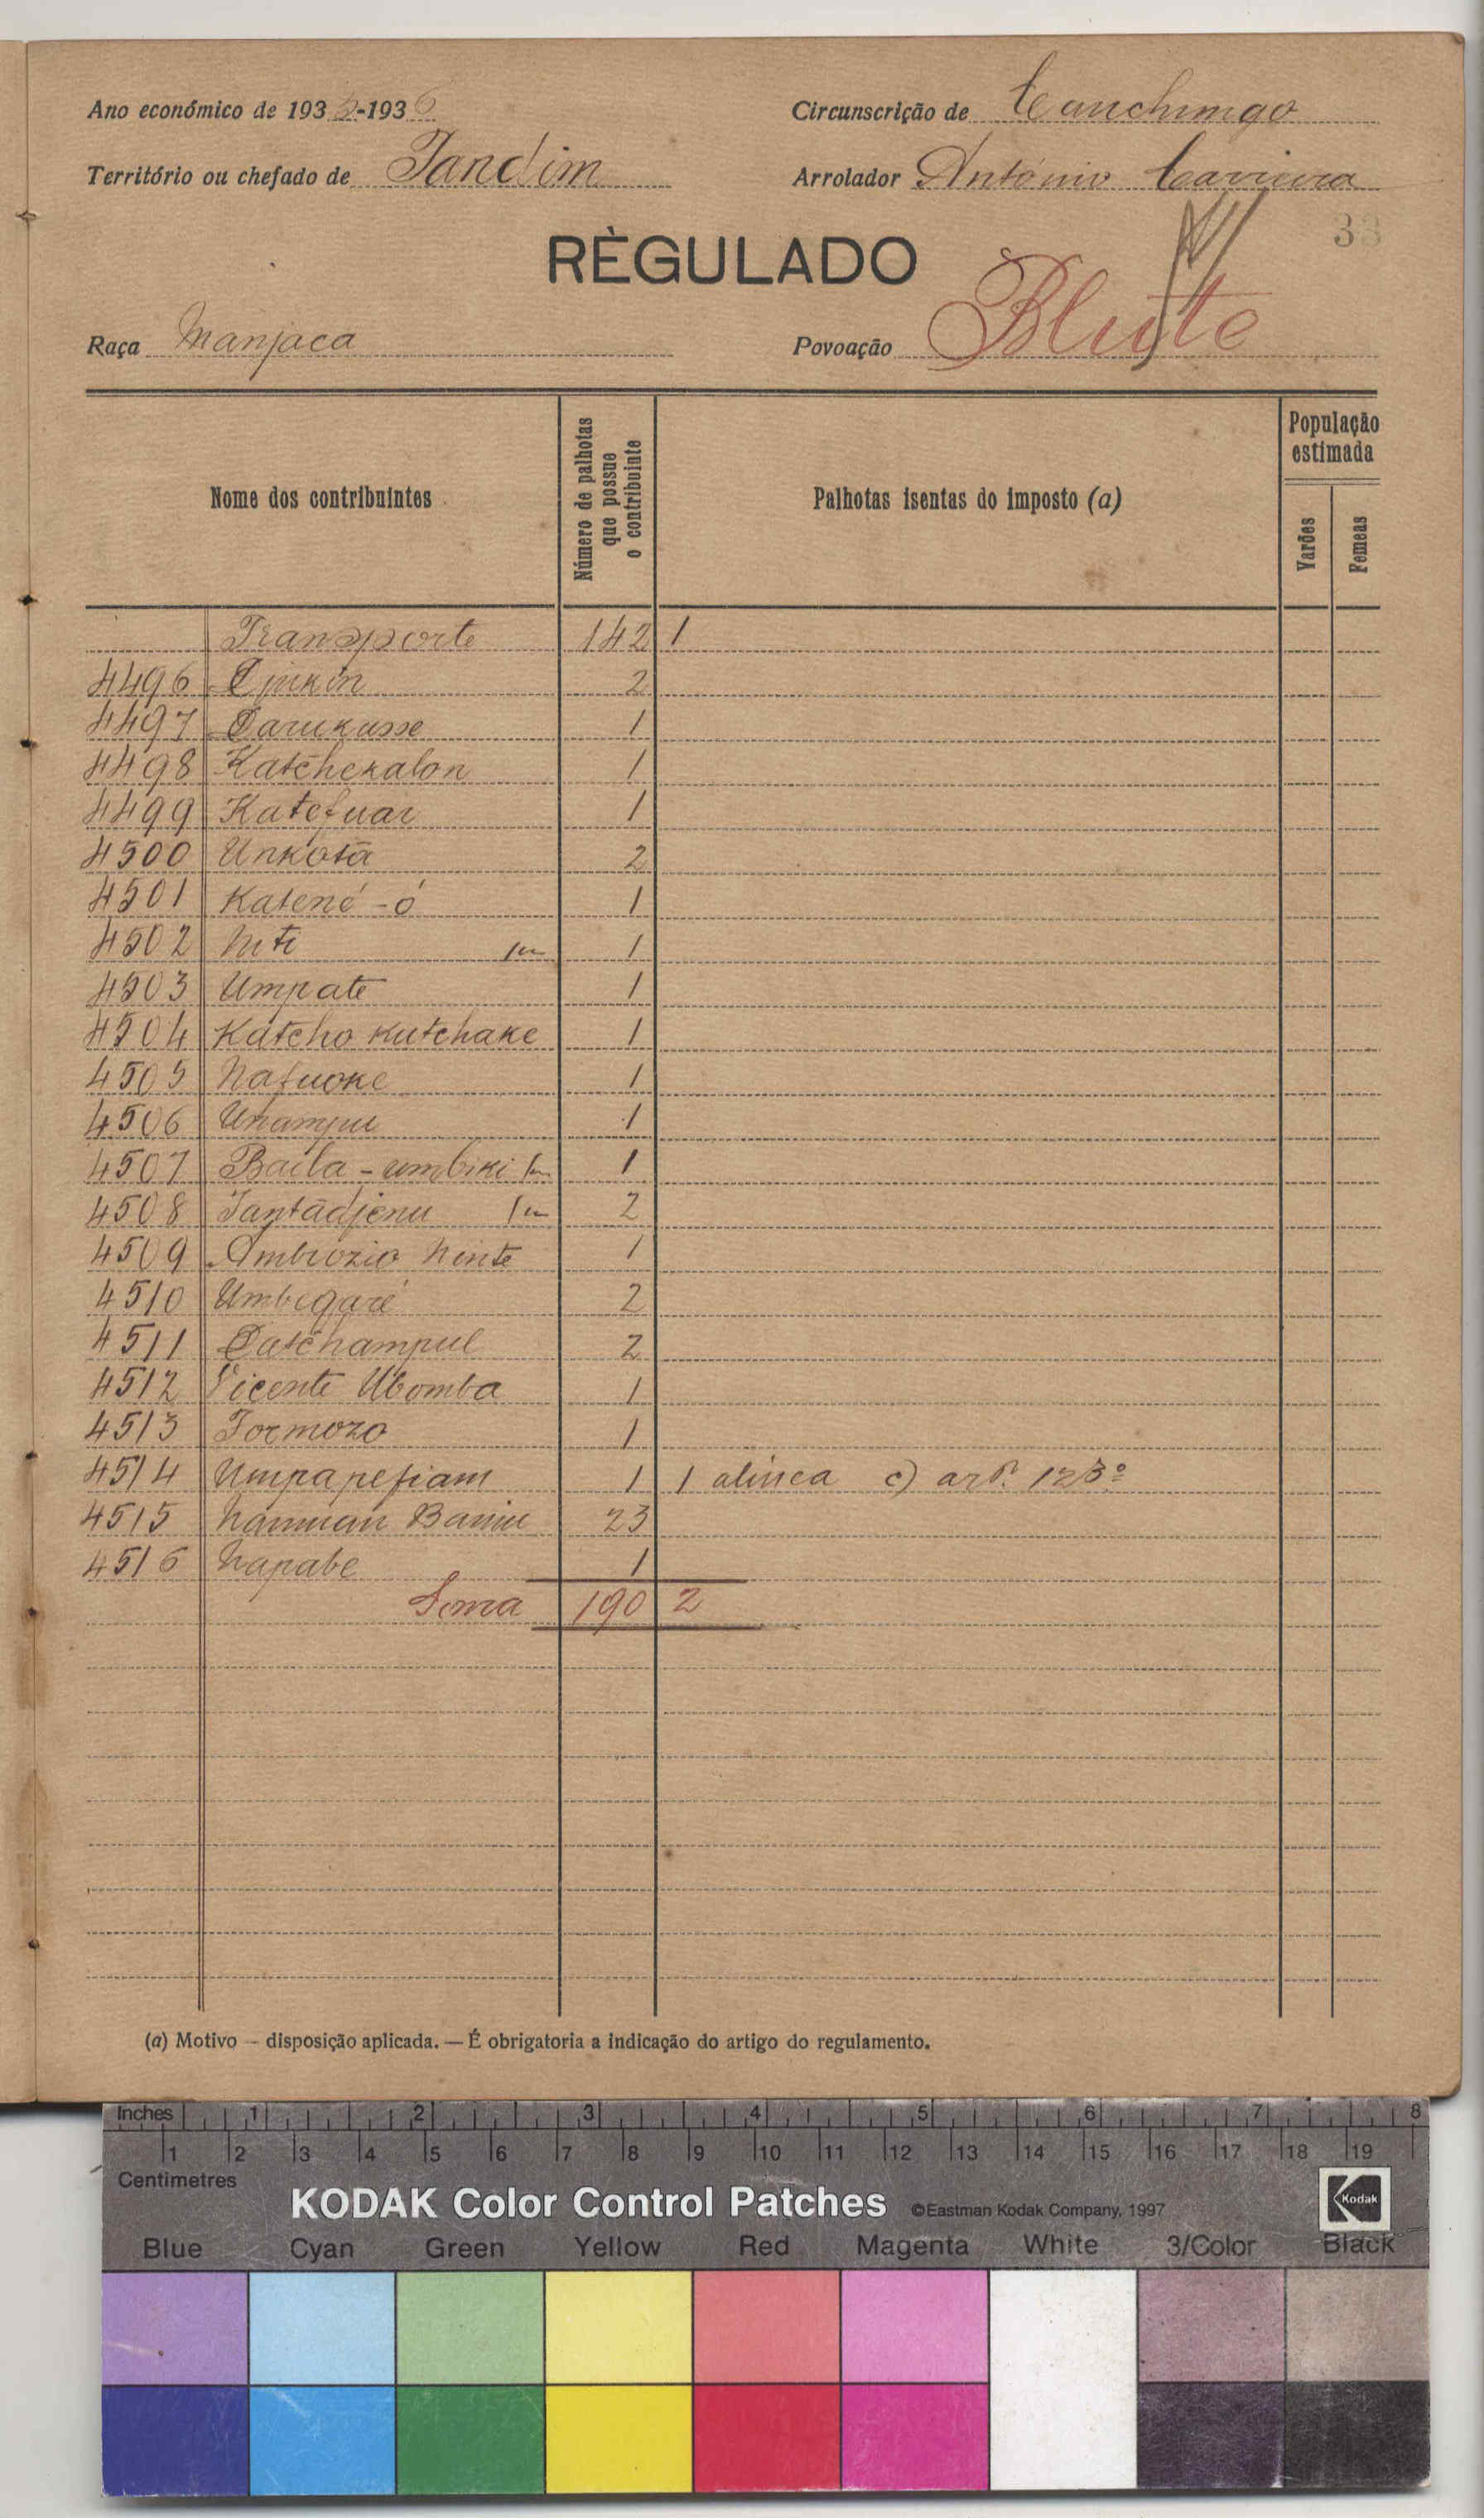 Ano económico de 1935-1936 Circunscrição de Canchungo
Território ou chefado de Jandim Arrolador António Carreira
33
RÈGULADO
Raça Manjaca Povoação
Nome dos contribuintes Número de palhotas que possue o contribuinte Palhotas isentas do imposto (a) População estimada Varões Femeas
Transporte 142 1
4496 2
4497 1
4498 Katchekalon 1
4499 Katefuar 1
4500 Unkotã 2
4501 Katené-ó 1
4502 1
4503 Umpate 1
4504 Katcho kutchake 1
4505 Nafuoke 1
4506 1
4507 Baila-umbiki 1
4508 2
4509 Ambrozio Ninte 1
4510 Umbegaré 2
4511 2
4512 Vicente Ubomba 1
4513 Formozo 1
4514 Umpapefiam 1 1 alinea c) artº. 123º
4515 23
4516 Napabe 1
Soma 190 2
(a) Motivo — disposição aplicada. — É obrigatoria a indicação do artigo do regulamento.
Inches 1 2 3 4 5 6 7 8
1 2 3 4 5 6 7 8 9 10 11 12 13 14 15 16 17 18 19
Centimetres
KODAK Color Control Patches ©Eastman Kodak Company, 1997 Kodak
Blue Cyan Green Yellow Red Magenta White 3/Color Black